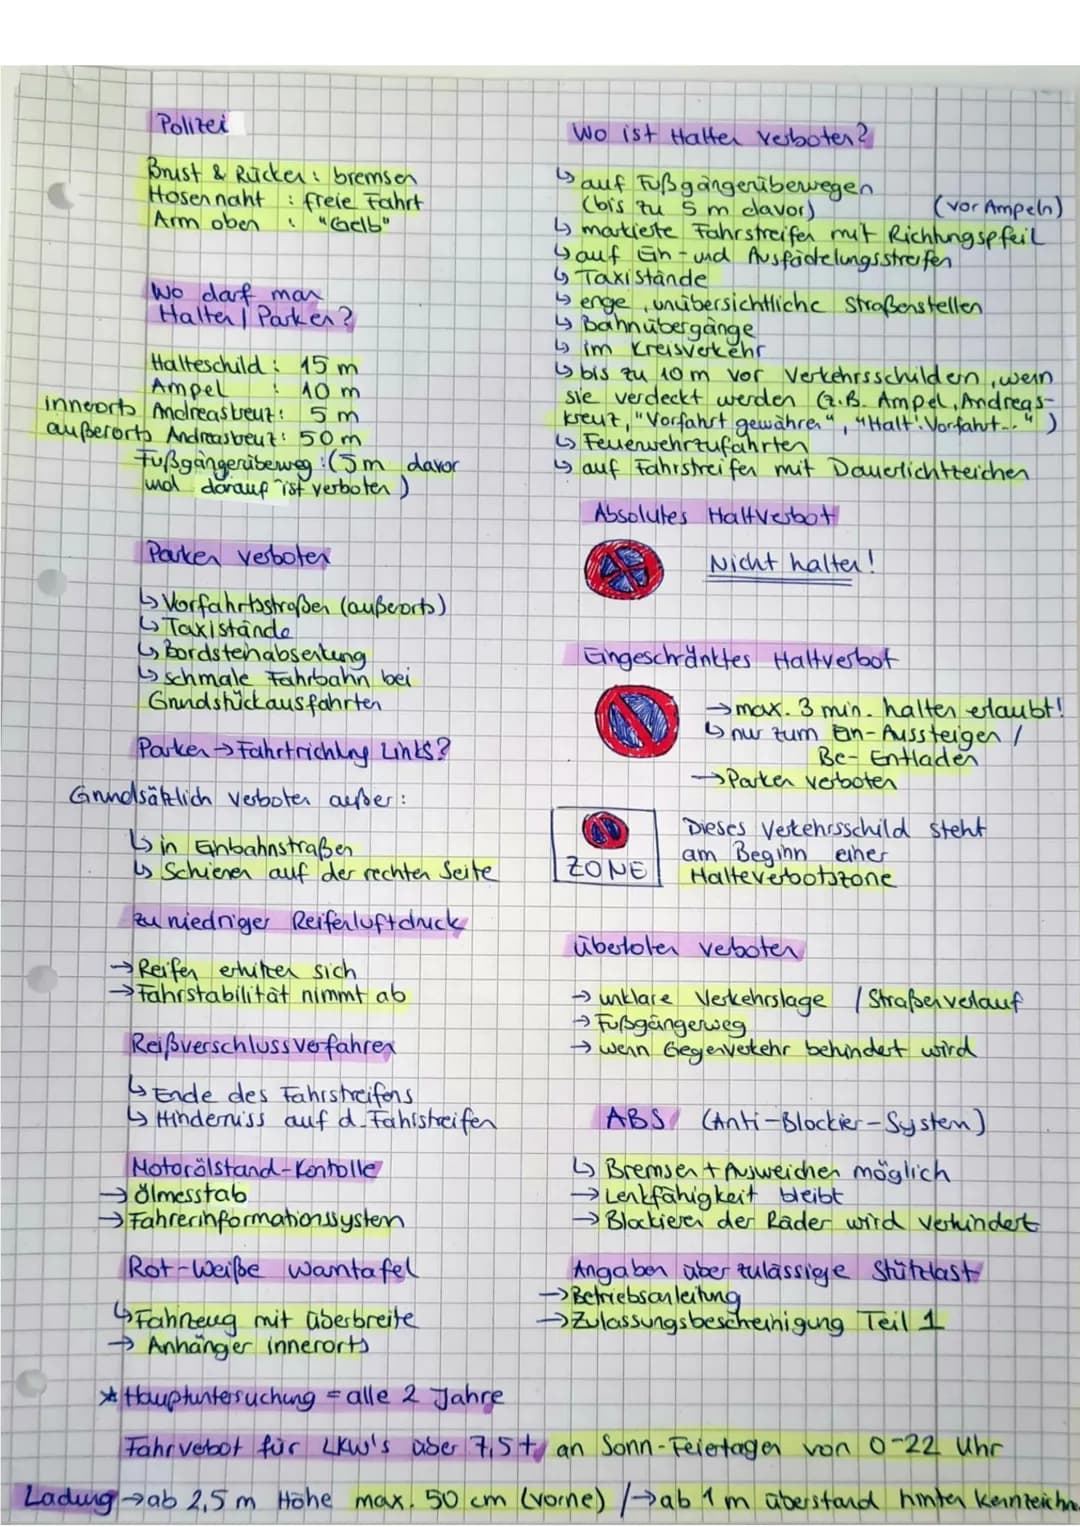 Polizei
Brust & Rücken: bremsen
Hosennaht : freie Fahrt
Arm oben : "Gelb"
Wo darf man
Halten / Parken?
Halteschild: 15 m
Ampel : 10 m
innerorts Andreaskreuz: 5 m
außerorts Andreaskreuz: 50 m
Fußgängerüberweg: (5m davor
und darauf ist verboten)
Parken verboten
↳ Vorfahrtsstraßen (außerorts)
↳ Taxistände
↳ Bordsteinabsenkung
↳ schmale Fahrbahn bei
Grundstückausfahrten
Parken → Fahrtrichtung Links?
Grundsätzlich verboten außer:
↳ in Einbahnstraßen
↳ Schienen auf der rechten Seite
zu niedriger Reifenluftdruck
→ Reifen erhitzen sich
→ Fahrstabilität nimmt ab
Reißverschlussverfahren
↳ Ende des Fahrstreifens
↳ Hinderniss auf d. Fahrstreifen
Motorölstand-Kontolle
→ Ölmesstab
→ Fahrerinformationssystem
Rot-Weiße Warntafel
↳ Fahrzeug mit überbreite
→ Anhänger innerorts
* Hauptuntersuchung = alle 2 Jahre
Wo ist Halten verboten?
↳ auf Fußgängerüberwegen
(bis zu 5 m davor) (vor Ampeln)
↳ markierte Fahrstreifen mit Richtungspfeil
↳ auf Ein- und Ausfädelungsstreifen
↳ Taxistände
↳ enge, unübersichtliche Straßenstellen
↳ Bahnübergänge
↳ im Kreisverkehr
↳ bis zu 10 m vor Verkehrsschildern, wenn
sie verdeckt werden (z.B. Ampel, Andreas-
kreuz, "Vorfahrt gewähren", "Halt! Vorfahrt..")
↳ Feuerwehrzufahrten
↳ auf Fahrstreifen mit Dauerlichtzeichen
Absolutes Haltverbot
Nicht halten!
Eingeschränktes Haltverbot
→ max. 3 min. halten erlaubt!
↳ nur zum Ein-Aussteigen /
Be- Entladen
→ Parken verboten
ZONE
Dieses Verkehrsschild steht
am Beginn einer
Halteverbotszone
überholen verboten
→ unklare Verkehrslage / Straßenverlauf
→ Fußgängerweg
→ wenn Gegenverkehr behindert wird
ABS (Anti-Blockier-System)
↳ Bremsen + Ausweichen möglich
→ Lenkfähigkeit bleibt
→ Blockieren der Räder wird verhindert
Angaben über zulässige Stützlast
→ Betriebsanleitung
→ Zulassungsbescheinigung Teil 1
Fahrvebot für LKW's über 7,5t, an Sonn-Feiertagen von 0-22 Uhr
Ladung → ab 2,5 m Höhe max. 50 cm (vorne) / → ab 1 m überstand hinten